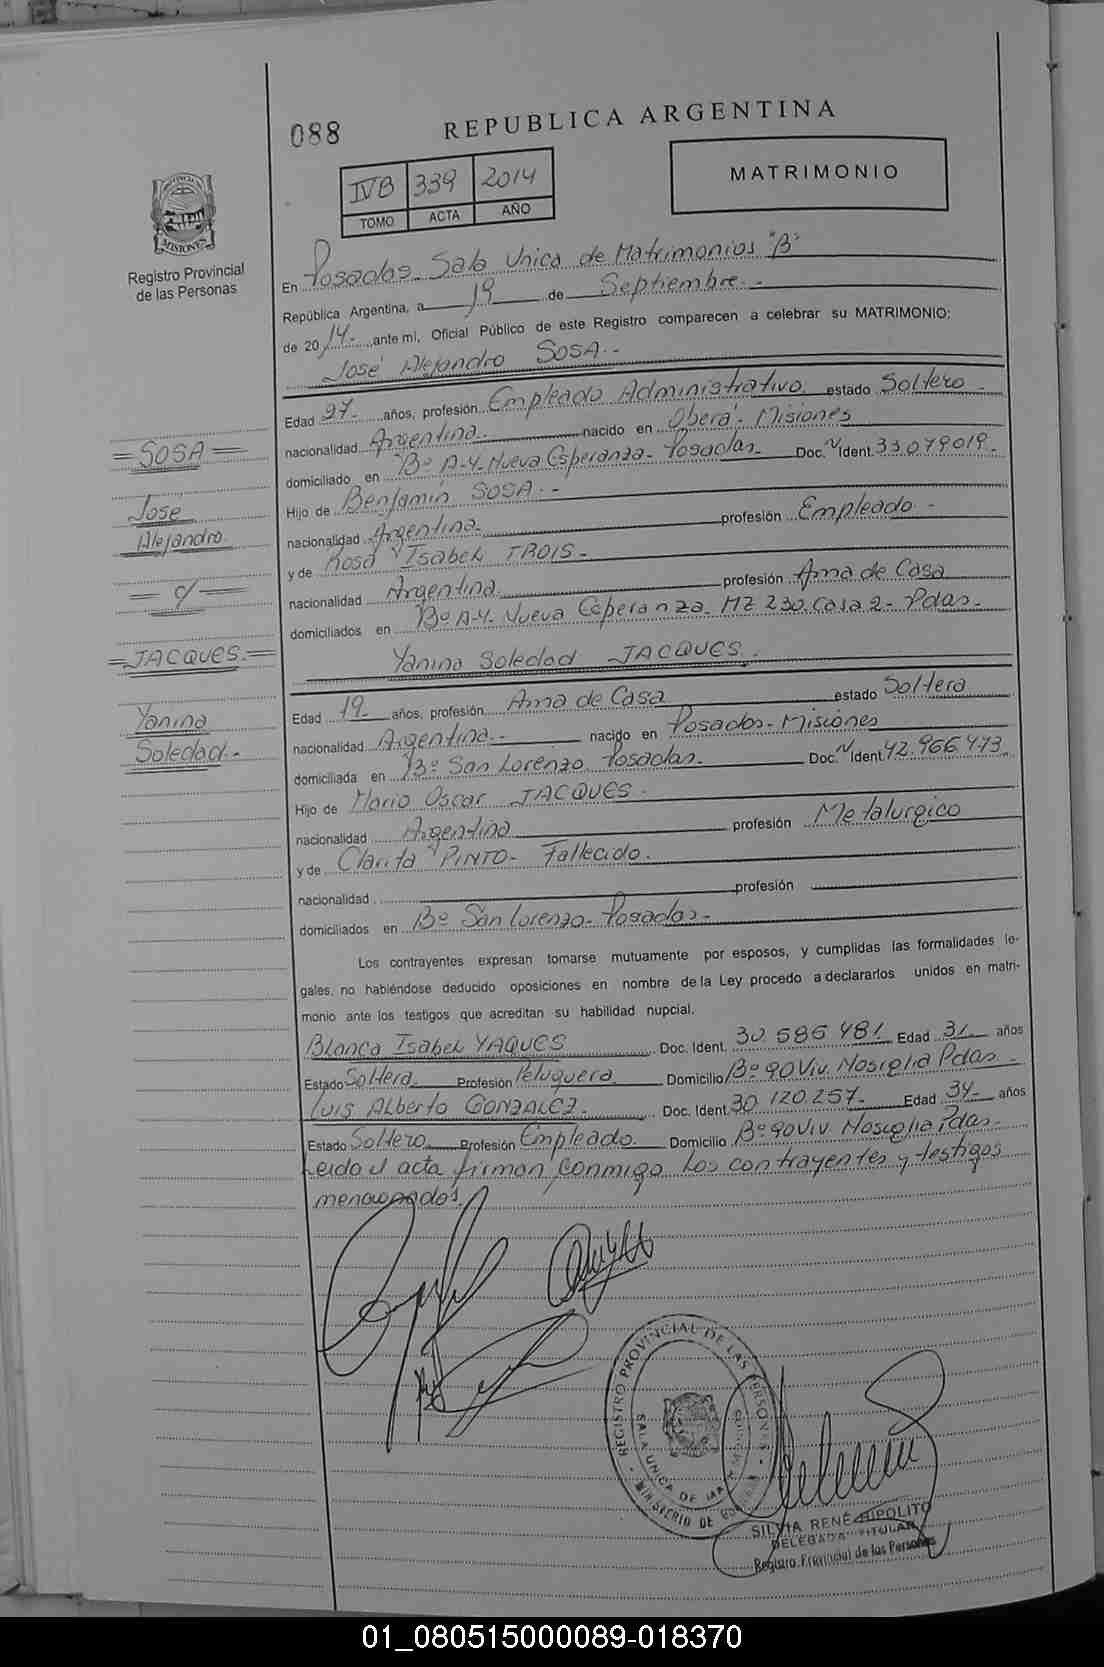 088
REPUBLICA ARGENTINA
MATRIMONIO
IVB 339 2014
TOMO ACTA AÑO
PROVINCIA
MISIONES
Registro Provincial
de las Personas
En Posadas Sala Unica de Matrimonios "B"
República Argentina, a 19 de Septiembre.-
de 2014.- ante mi, Oficial Público de este Registro comparecen a celebrar su MATRIMONIO:
José Alejandro SOSA.-
Edad 27.- años, profesión Empleado Administrativo estado Soltero.-
nacionalidad Argentina.- nacido en Oberá - Misiones
domiciliado en Bº A-4-Nueva Esperanza- Posadas.- Doc. N Ident. 33.079.019.-
Hijo de Benjamín SOSA.-
nacionalidad Argentina.- profesión Empleado.-
y de Rosa Isabel TROIS.-
nacionalidad Argentina profesión Ama de Casa
domiciliados en Bº A-4- Nueva Esperanza- MZ 230. Casa 2- Pdas.-
Yanina Soledad JACQUES.
Edad 19.- años, profesión Ama de Casa estado Soltera
nacionalidad Argentina.- nacido en Posadas- Misiones
domiciliada en Bº San Lorenzo Posadas.- Doc. N Ident. 42.966.473.
Hijo de Mario Oscar JACQUES.
nacionalidad Argentina profesión Metalurgico
y de Clarita PINTO- Fallecido.
nacionalidad profesión
domiciliados en Bº San Lorenzo- Posadas-
Los contrayentes expresan tomarse mutuamente por esposos, y cumplidas las formalidades le-
gales, no habiéndose deducido oposiciones en nombre de la Ley procedo a declararlos unidos en matri-
monio ante los testigos que acreditan su habilidad nupcial.
Blanca Isabel YAQUES Doc. Ident. 30.585.481. Edad 31.- años
Estado Soltera Profesión Peluquera Domicilio Bº 90 Viv. Mosiglia Pdas.-
Luis Alberto GONZALEZ.- Doc. Ident. 30.120.257.- Edad 34- años
Estado Soltero Profesión Empleado. Domicilio Bº 90 Viv. Mosiglia Pdas.-
Leido el acta firman conmigo los contrayentes y testigos
mencionados.
= SOSA =
José
Alejandro
= c/ =
= JACQUES. =
Yanina
Soledad.-
REGISTRO PROVINCIAL DE LAS PERSONAS
SALA UNICA DE
MINISTERIO DE
SILVIA RENÉ HIPOLITO
DELEGADA TITULAR
Registro Provincial de las Personas
01_080515000089-018370